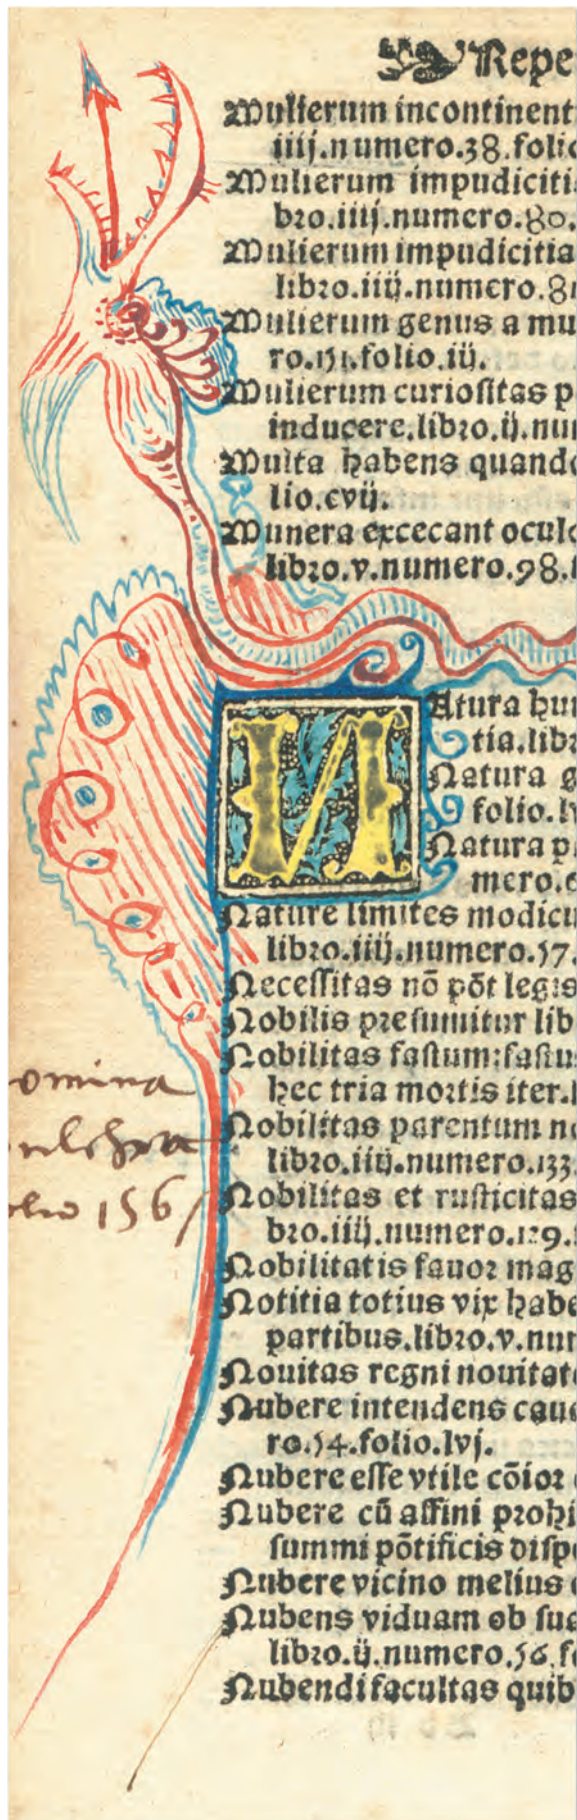 Repe
Mulierum incontinent
iiij.numero.38.folio
Mulierum impudicitia
bro.iiij.numero.80.
Mulierum impudicitia
libro.iiij.numero.81
Mulierum genus a mu
ro.151.folio.iij.
Mulierum curiositas p
inducere.libro.ij.nu
Multa habens quando
lio.cvij.
Munera excecant oculo
libro.v.numero.98.
Natura hu
tia.libr
Natura g
folio.l
Natura p
mero.6
Nature limites modicu
libro.iiij.numero.57.
Necessitas nō pōt legis
Nobilis presumitur lib
Nobilitas fastum:fastu
hec tria mortis iter.l
omina
Nobilitas parentum no
ulchra
libro.iiij.numero.133
olio 156
Nobilitas et rusticitas
bro.iiij.numero.129.
Nobilitatis fauor mag
Notitia totius vix habe
partibus.libro.v.num
Nouitas regni nouitat
Nubere intendens caue
ro.54.folio.lvj.
Nubere esse vtile cōior
Nubere cū affini prohi
summi pōtificis dispe
Nubere vicino melius
Nubens viduam ob sua
libro.ij.numero.56.fo
Nubendi facultas quib